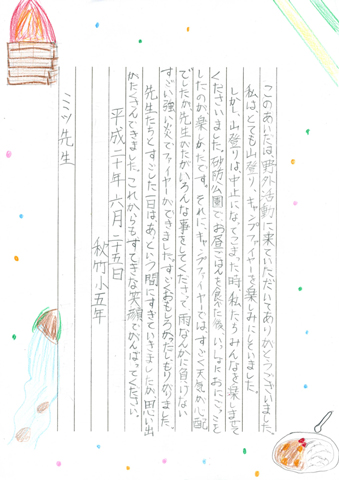 このあいだは、野外活動に来ていただいてありがとうございました。
私はとても山登り、キャンプファイヤーを楽しみにしていました。
しかし、山登りは、中止になってしまった時、私たちみんなを楽しませて
くださいました。砂防公園で、お昼ごはんを食べた後、いっしょにおにごっこを
したのが楽しかったです。それに、キャンプファイヤーでは、すごく天気が心配
でしたが、先生がたがいろんな事をしてくださって、雨なんかに負けない
すごい強い炎でファイヤーができました。すごくおもしろかったし、もりあがりました。
先生たちとすごした一日は、あっという間にすぎていきましたが、思い出
がたくさんできました。これからもすてきな笑顔でがんばってください。
平成二十年六月二十五日
秋竹小五年
ミツ先生